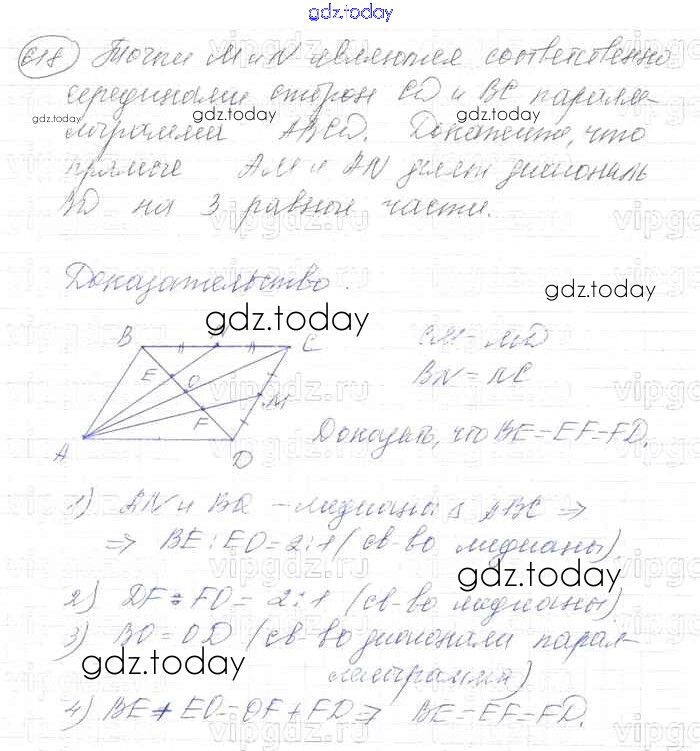 gdz.today
618) Точки M и N являются соответственно
серединами сторон CD и BC паралле-
gdz.today gdz.today gdz.today
лограмма ABCD. Докажите, что
прямые AM и AN делят диагональ
BD на 3 равные части.
Доказательство.
gdz.today
gdz.today
B N C
CM = MD
BN = NC
E O
M
F
A D
Доказать, что BE=EF=FD.
1) AN и BO – медианы Δ ABC ⇒
⇒ BE : EO = 2:1 (св-во медианы)
gdz.today
2) DF : FO = 2:1 (св-во медианы)
3) BO = OD (св-во диагонали парал-
gdz.today
лелограмма)
4) BE + EO = OF + FD ⇒ BE = EF = FD.